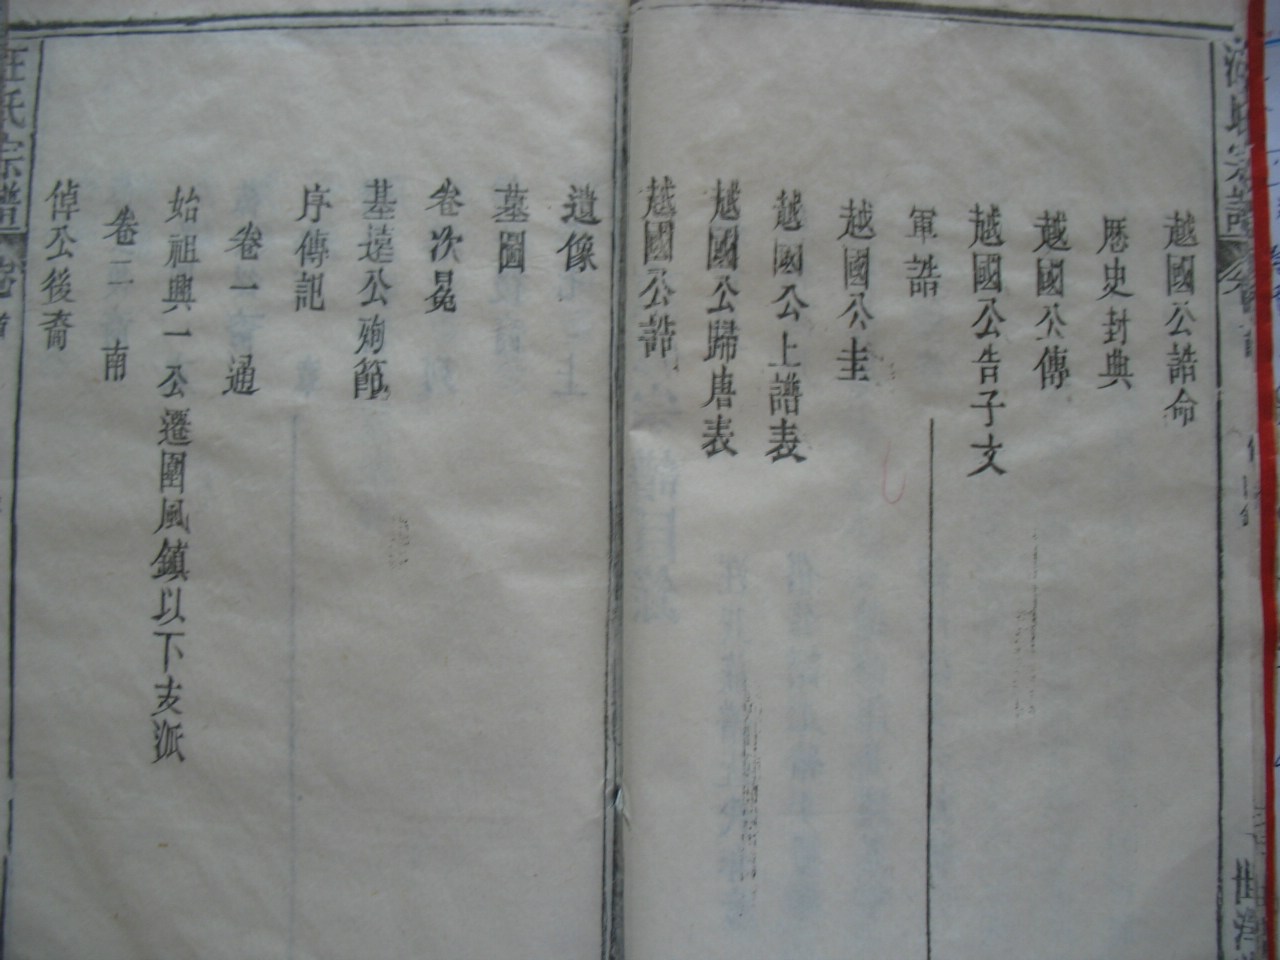 越國公誥命
歷史封典
越國公傳
越國公告子文
軍誥
越國公圭
越國公上譜表
越國公歸唐表
越國公誥
遺像
墓圖
卷次冕
基達公殉節
序傳記
卷一 通
始祖興一公遷團風鎮以下支派
卷二 南
倬公後裔
汪氏宗譜